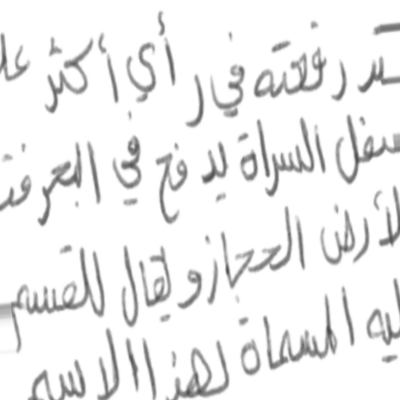 رفعته في رأي أكثر
السراة يد فع في البحر
الأرض الحجاز و يقال للقسم
المسماة لهذا الاسم